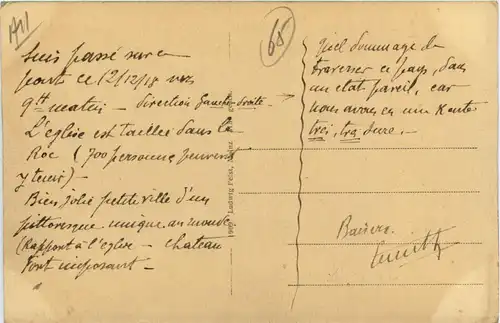 A11
65
Suis passé sur ce
pont ce 12/12/18 vers
9h matin - direction Gauche-droite.
L'église est taillée dans le
Roc (700 personnes peuvent
y tenir) -
Bien jolie petite ville d'un
pittoresque unique au monde
(Rapport à l'église - chateau
fort imposant -
1909 Ludwig Feist, Mainz
Quel dommage de
traverser ce pays, dans
un état pareil, car
nous avons eu une route
très, très dure. -
Baisers.